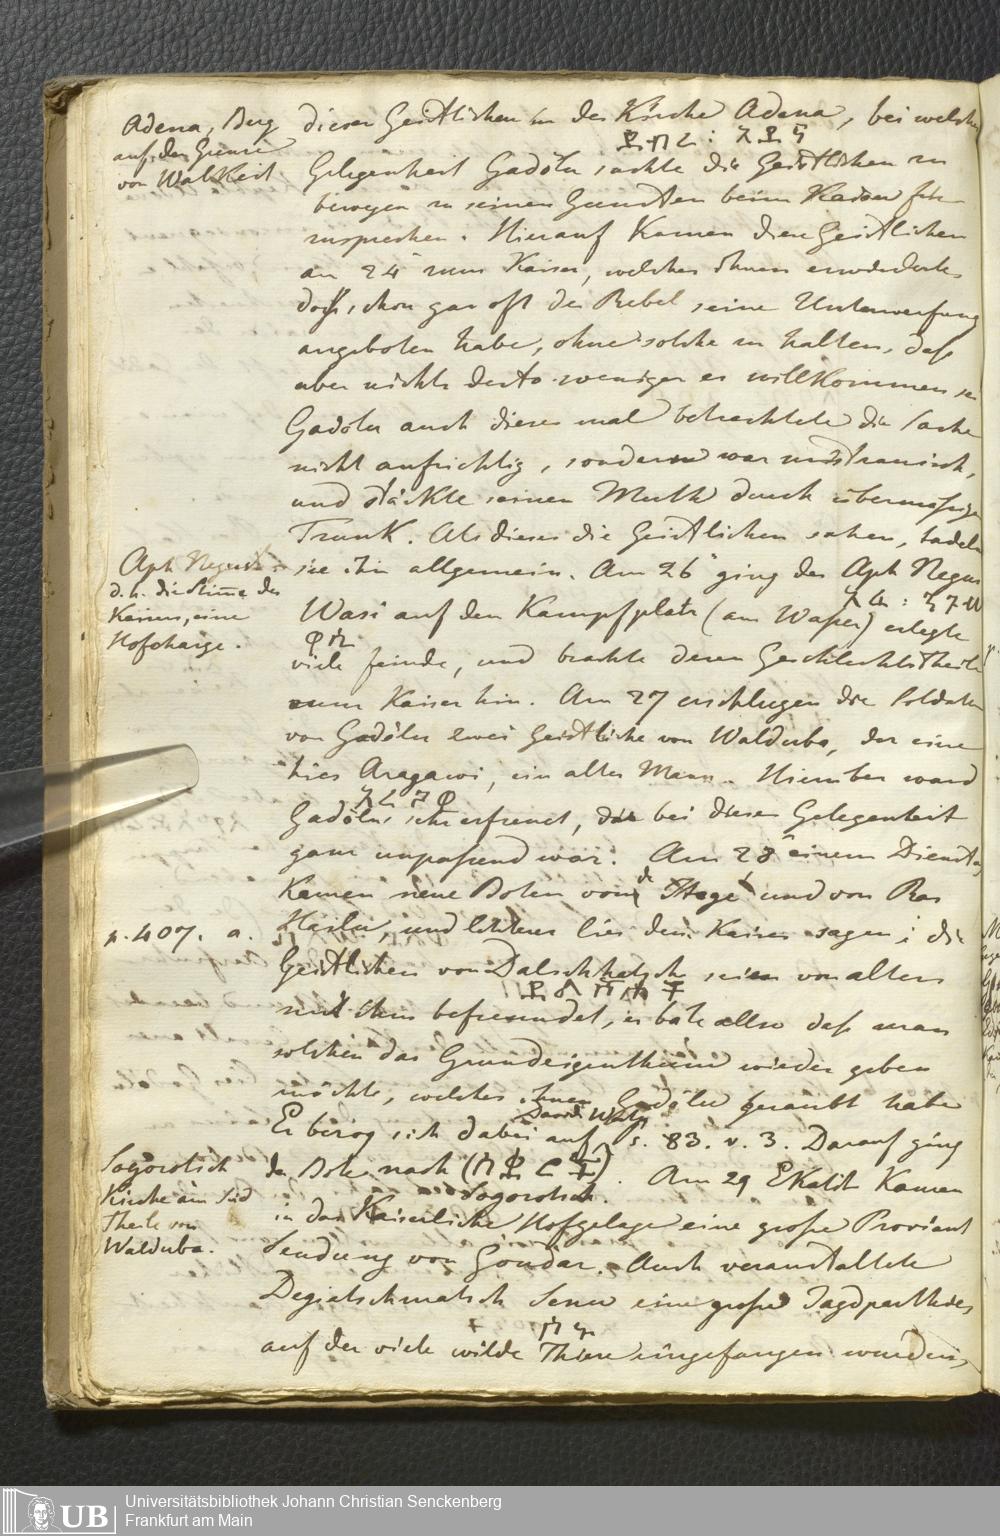 Adena, Berg
auf der Grenze
von Walkeit
dieser Geistlichen in der Kirche Adena, bei welcher
Gelegenheit Gadölu suchte die Geistlichen zu
bewegen zu seinen Gunsten beim Kaiser für
zusprechen. Hierauf kamen diese Geistlichen
am 24 zum Kaiser, welcher ihnen erwiederte
daß schon gar oft der Rebel seine Unterwerfung
angeboten habe, ohne solche zu halten, daß
aber nichts desto weniger er willkommen sei
Gadölu auch dieses mal betrachtete die Sache
nicht aufrichtig, sondern war mistrauisch,
und stärkte seinen Muth durch übermäsigen
Trunk. Als dieses die Geistlichen sahen, tadelten
Aph Negust
d. h. die Stime des
Kaisers, eine
Hofcharge.
sie ihn allgemein. Am 26 ging der Aph Negus
Wasi auf den Kampfplatz (am Waßer) erlegte
viele Feinde, und brachte deren Geschlechtstheile
zum Kaiser hin. Am 27 erschlugen die Soldaten
von Gadölu zwei Geistliche von Walduba, der eine
hies Aragawi, ein alter Mann. Hierüber ward
አረጋዊ
Gadölu sehr erfreut, das bei dieser Gelegenheit
ganz unpaßend war. Am 28 einem Dienstag
kamen neue Boten von Itege und von Ras
p. 407. a.
Hailu, und letzterer lies dem Kaiser sagen; die
Geistlichen von Dalschhatsch seien von alters
mit ihm befreundet, er bate also daß man
solchen das Grundeigenthum wieder geben
möchte, welches ihnen Gadölu geraubt habe
Er bezog sich dabei auf Ps. 83. v. 3. Darauf ging
Sogorotsch
Kirche am Süd
Theile von
Walduba.
der Bote nach
Sogorotsch. Am 29 Ekatit kamen
in das Kaiserliche Hofgelage eine große Proviant
Sendung von Gondar. Auch veranstaltete
Degiatschmatsch Senu eine große Jagdparthie
auf der viele wilde Thiere eingefangen wurden,
UB
Universitätsbibliothek Johann Christian Senckenberg
Frankfurt am Main